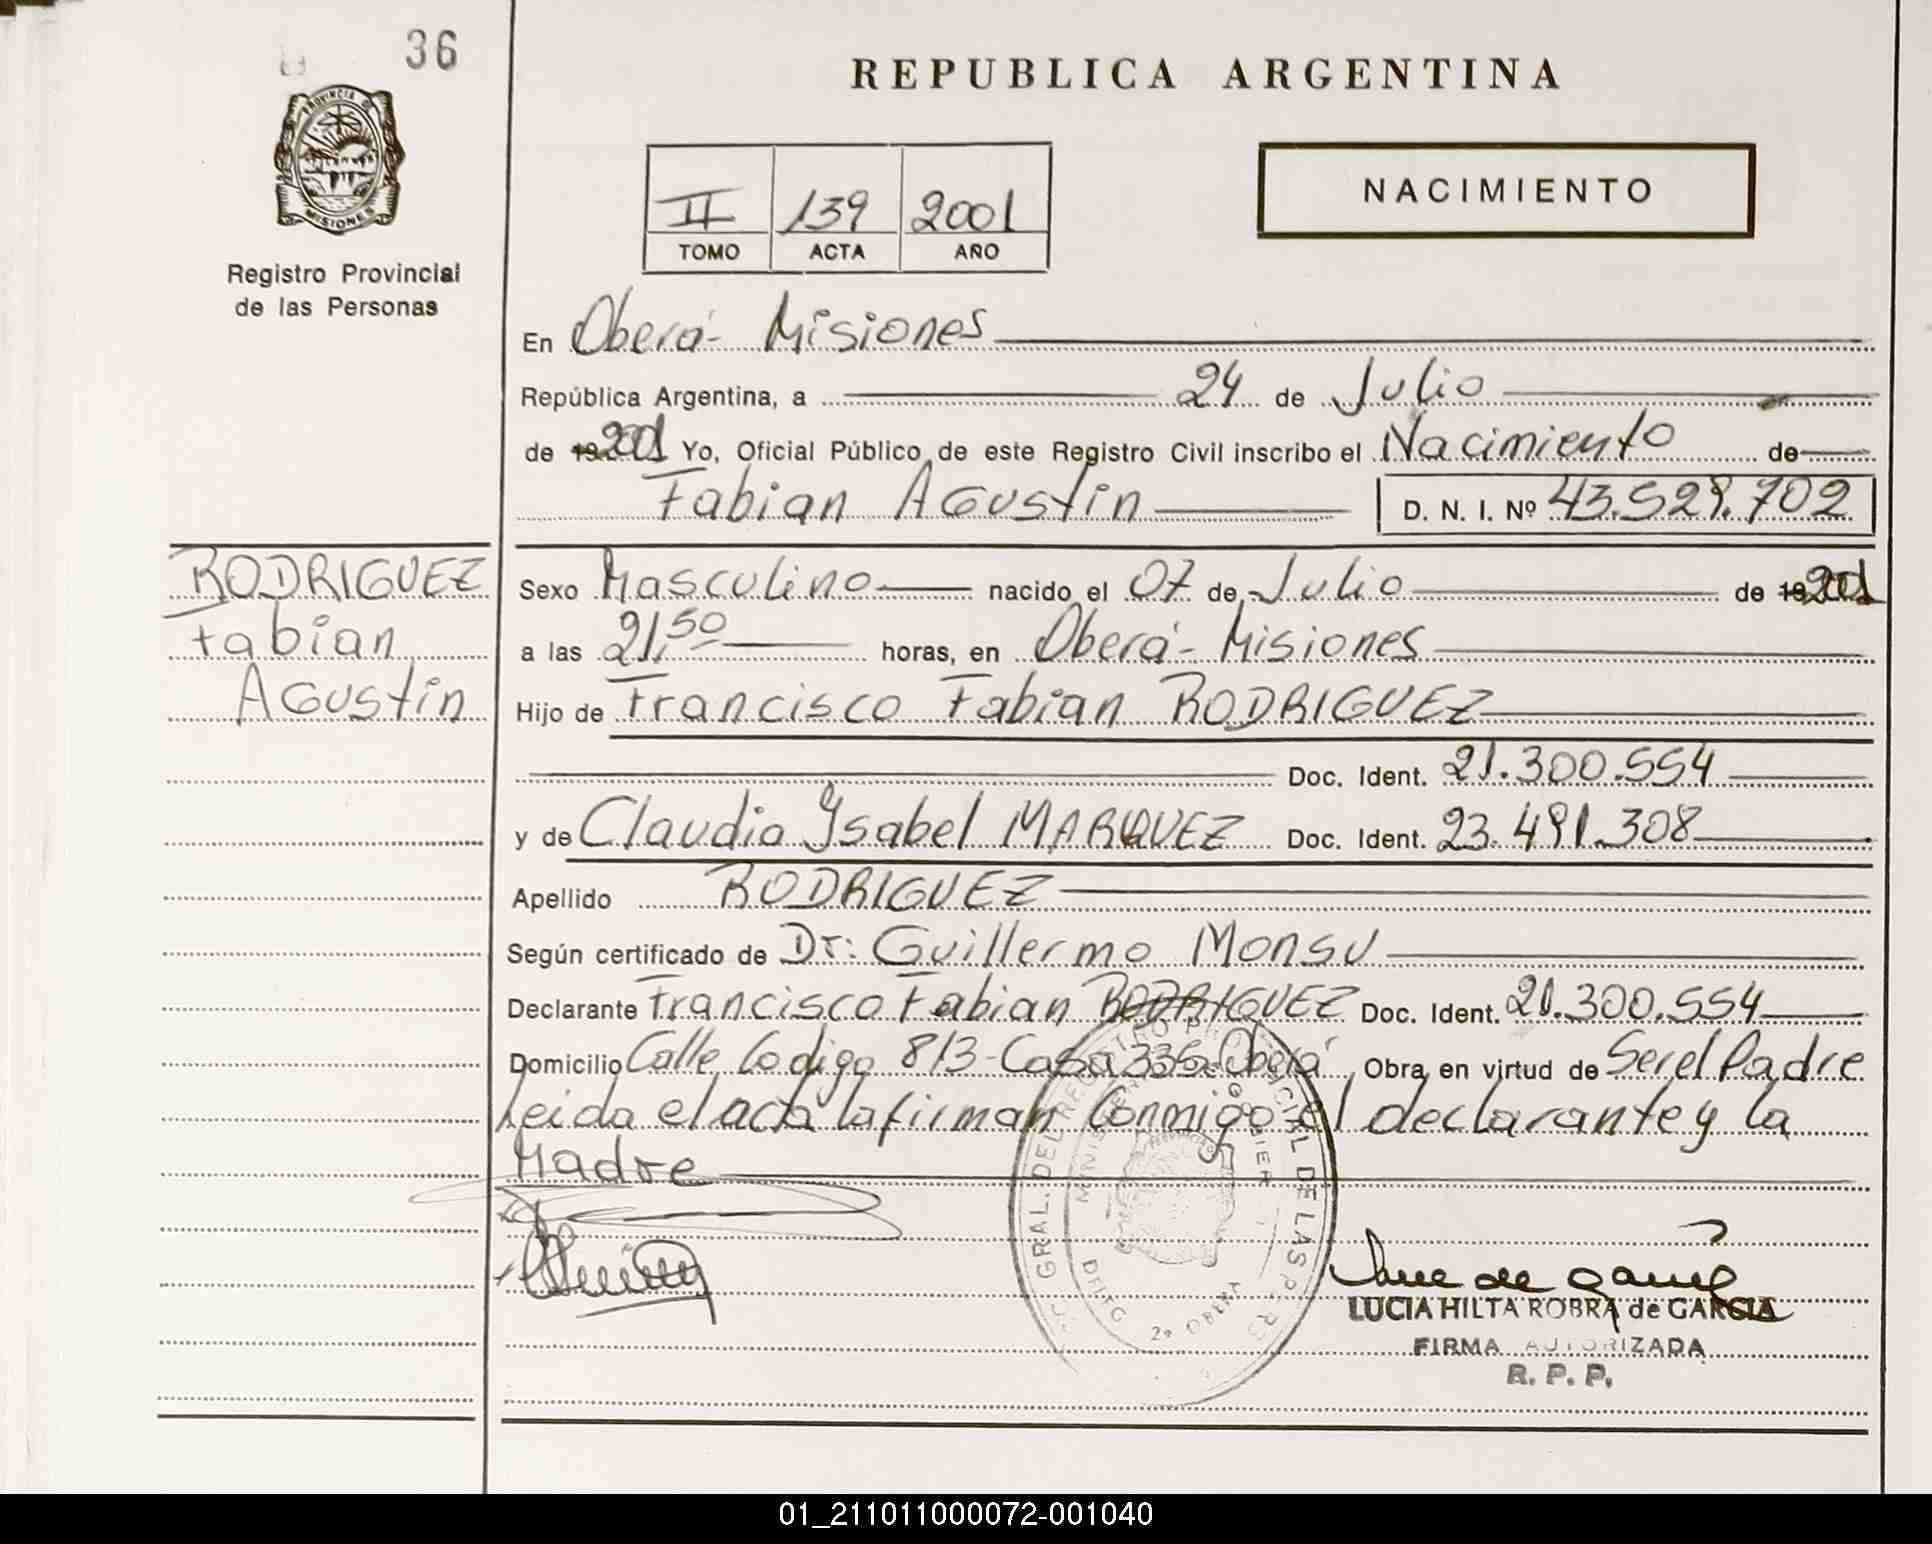 36
REPUBLICA ARGENTINA
PROVINCIA DE
MISIONES
Registro Provincial
de las Personas
II 139 2001
TOMO ACTA AÑO
NACIMIENTO
En Oberá- Misiones
República Argentina, a 24 de Julio
de 19 2001 Yo, Oficial Público de este Registro Civil inscribo el Nacimiento de
Fabian Agustin D. N. I. Nº 43.529.702
RODRIGUEZ
Fabian
Agustin
Sexo Masculino nacido el 07 de Julio de 19 2001
a las 21,50 horas, en Oberá- Misiones
Hijo de Francisco Fabian RODRIGUEZ
Doc. Ident. 21.300.554
y de Claudia Ysabel MARQUEZ Doc. Ident. 23.491.308
Apellido RODRIGUEZ
Según certificado de Dr: Guillermo Monsu
Declarante Francisco Fabian RODRIGUEZ Doc. Ident. 21.300.554
Domicilio Calle Codigo 813-Casa 336-Oberá Obra en virtud de Ser el Padre
Leida el acta la firman conmigo el declarante y la
Madre
GRAL. DEL REGISTRO PROVINCIAL DE LAS
OBERA
LUCIA HILTA ROBRA de GARCIA
FIRMA AUTORIZADA
R. P. P.
01_211011000072-001040